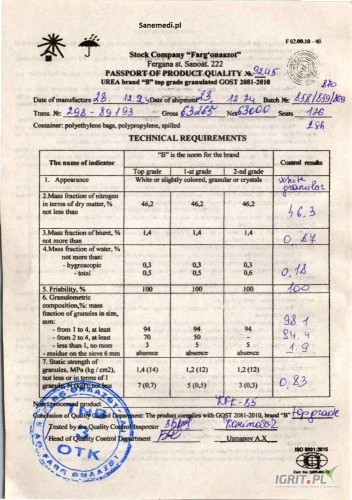 Sanemedi.pl
F 02.00.10 - 46
Stock Company "Farg'onaazot"
Fergana st. Sanoat. 222
PASSPORT OF PRODUCT QUALITY № 9245
UREA brand "B" top grade granulated GOST 2081-2010
Date of manufacture 23. 12.24 Date of shipment 23. 12 24 Batch № 858/859/869
Trans. № 298-89193 Gross 63265 Net 63000 Seats 126
Container: polyethylene bags, polypropylene, spilled
TECHNICAL REQUIREMENTS
The name of indicator "B" is the norm for the brand Control results
Top grade 1-st grade 2-nd grade
1. Appearance White or slightly colored, granular or crystals white granular
2.Mass fraction of nitrogen in terms of dry matter, % not less than 46,2 46,2 46,2 46,3
3.Mass fraction of biuret, % not more than 1,4 1,4 1,4 0,87
4.Mass fraction of water, % not more than:
- hygroscopic 0,3 0,3 0,3
- total 0,5 0,5 0,6 0,18
5. Friability, % 100 100 100 100
6. Granulometric composition,%: mass fraction of granules in size, mm:
- from 1 to 4, at least 94 94 94 98.1
- from 2 to 4, at least 70 50 - 84.4
- less than 1, no more 3 5 5 1.9
- residue on the sieve 6 mm absence absence absence
7. Static strength of granules, MPa (kg / cm2), not less or in terms of 1 granule, N (kgf), not less
1,4 (14) 1,2 (12) 1,2 (12)
7 (0,7) 5 (0,5) 3 (0,3) 0,83
Note: processed product
Conclusion of Quality Control Department: The product complies with GOST 2081-2010, brand "B" top grade
Tested by the Quality Control Inspector
Head of Quality Control Department Usmanov A.X
ОТК
ISO 9001:2015
IGRIT.PL